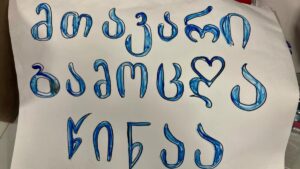 მთავარი
გამოცდა
წინაა